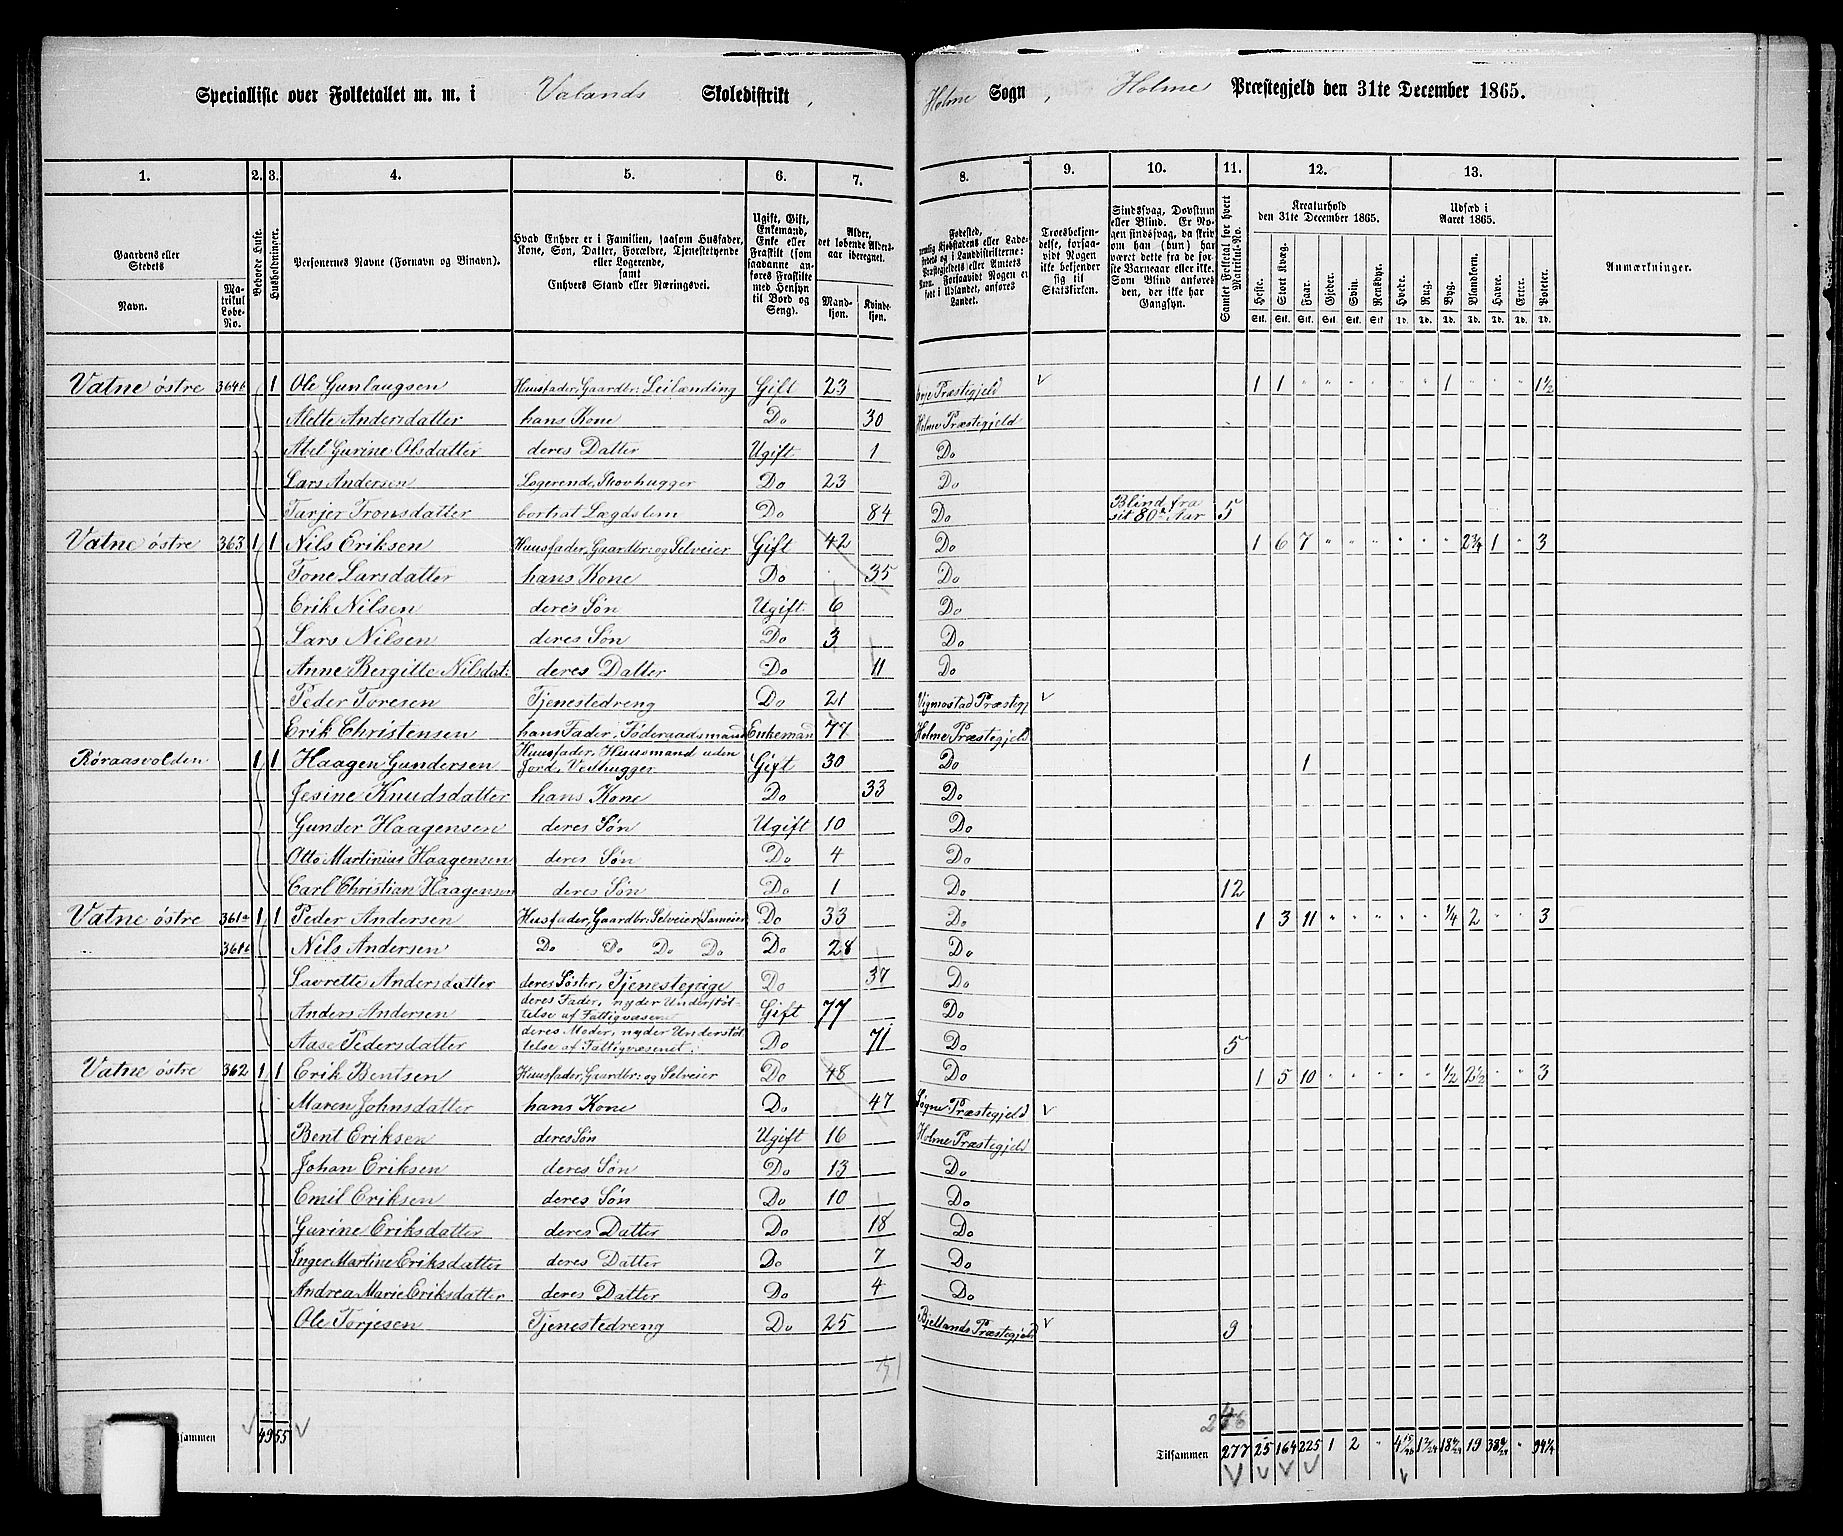 Specialliste over Folketallet m. m. i Valands Skoledistrikt, Holme Sogn, Holme Præstegjeld den 31te December 1865.
1. 2. 3. 4. 5. 6. 7. 8. 9. 10. 11. 12. 13.
Gaardens eller Stedets
Navn. Matrikul Løbe-No.
Beboede Huse.
Husholdninger.
Personernes Navne (Fornavn og Binavn).
Hvad Enhver er i Familien, saasom Husfader, Kone, Søn, Datter, Forældre, Tjenestetyende eller Logerende, samt Enhvers Stand eller Næringsvei.
Ugift, Gift, Enkemand, Enke eller Fraskilt (som saadanne anføres Fraskilte med Hensyn til Bord og Seng).
Alder, det løbende Aldersaar iberegnet.
Mandkjøn. Kvindekjøn.
Troesbekjendelse, forsaavidt Nogen ikke bekjender sig til Statskirken.
Sindssvag, Døvstum eller Blind. Er Nogen sindssvag, da skrives om han (hun) har været dette fra de første Barneaar eller ikke. Som Blind anføres den, der ikke har Gangsyn.
Samlet Folketal for hvert Matrikul-No.
Kreaturhold den 31te December 1865.
Heste. Stort Kvæg. Faar. Gjeder. Svin. Rensdyr.
Stk. Stk. Stk. Stk. Stk. Stk.
Udsæd i Aaret 1865.
Hvede. Rug. Byg. Blandkorn. Havre. Erter. Poteter.
Td. Td. Td. Td. Td. Td. Td.
Anmærkninger.
Vatne østre 364b 1 Ole Gunlaugsen Huusfader, Gaardbr: Leilænding Gift 23 Præstegjeld 1 1 " " " " " " 1 " " " 1½
Alette Andersdatter hans Kone Do 30 Holme Præstegjeld
Abel Gurine Olsdatter deres Datter Ugift 1 Do
Lars Andersen Logerende, Skovhugger Do 23 Do
Tarjer Tronsdatter bortsat Lægdslem Do 84 Do Blind fra sit 80de Aar 5
Vatne østre 363 1 1 Nils Eriksen Huusfader, Gaardbr: og Selveier Gift 42 Do 1 6 7 " " " " " " 2¾ 1 " 3
Tone Larsdatter hans Kone Do 35 Do
Erik Nilsen deres Søn Ugift 6 Do
Lars Nilsen deres Søn Do 3 Do
Anne Bergitte Nilsdat: deres Datter Do 11 Do
Peder Toresen Tjenestedreng Do 21 Vigmostad Præstegj
Erik Christensen hans Fader, Føderaadsmand Enkemand 77 Holme Præstegjeld
Røraasvolden 1 1 Haagen Gundersen Huusfader, Huusmand uden Jord, Vedhugger Gift 30 Do 1
Jesine Knudsdatter hans Kone Do 33 Do
Gunder Haagensen deres Søn Ugift 10 Do
Otto Martinius Haagensen deres Søn Do 4 Do
Carl Christian Haagensen deres Søn Do 1 Do 12
Vatne østre 361a 1 1 Peder Andersen Husfader, Gaardbr: Selveier (Sameier Do 33 Do 1 3 11 " " " " " ¼ 2 " " 3
361b Nils Andersen Do Do Do Do Do 28 Do
Lavrette Andersdatter deres Søster, Tjenestepige Do 37 Do
Anders Andersen deres Fader, nyder Understøttelse af Fattigvæsenet Gift 77 Do
Aase Pedersdatter deres Moder, nyder Understøttelse af Fattigvæsenet: Do 71 Do 5
Vatne østre 362 1 1 Erik Bentsen Huusfader, Gaardbr: og Selveier Do 48 Do 1 5 10 " " " " " ½ 2½ " " 3
Maren Johnsdatter hans Kone Do 47 Søgne Præstegjeld
Bent Eriksen deres Søn Ugift 16 Holme Præstegjeld
Johan Eriksen deres Søn Do 13 Do
Emil Eriksen deres Søn Do 10 Do
Gurine Eriksdatter deres Datter Do 18 Do
Inger Martine Eriksdatter deres Datter Do 7 Do
Andrea Marie Eriksdatter deres Datter Do 4 Do
Ole Torjesen Tjenestedreng Do 25 Bjellands Præstegjeld 9
49 55 Tilsammen 277 25 164 225 1 2 " 19 " 94¼